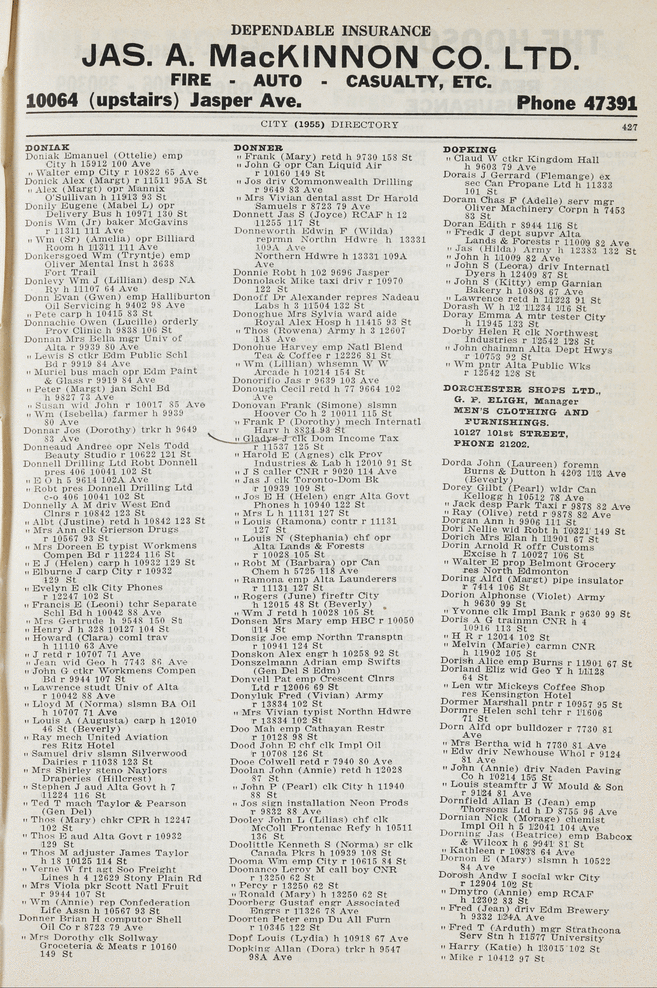 DEPENDABLE INSURANCE
JAS. A. MacKINNON CO. LTD.
FIRE - AUTO - CASUALTY, ETC.
10064 (upstairs) Jasper Ave. Phone 47391
CITY (1955) DIRECTORY 427
DONIAK
Doniak Emanuel (Ottelie) emp
City h 15912 100 Ave
" Walter emp City r 10822 65 Ave
Donick Alex (Margt) r 11511 95A St
" Alex (Margt) opr Mannix
O'Sullivan h 11913 93 St
Donily Eugene (Mabel L) opr
Delivery Bus h 10971 130 St
Donis Wm (Jr) baker McGavins
r 11311 111 Ave
" Wm (Sr) (Amelia) opr Billiard
Room h 11311 111 Ave
Donkersgoed Wm (Tryntje) emp
Oliver Mental Inst h 3638
Fort Trail
Donlevy Wm J (Lillian) desp NA
Ry h 11107 64 Ave
Donn Evan (Gwen) emp Halliburton
Oil Servicing h 9402 98 Ave
" Pete carp h 10415 83 St
Donnachie Owen (Lucille) orderly
Prov Clinic h 9838 106 St
Donnan Mrs Bella mgr Univ of
Alta r 9939 80 Ave
" Lewis S ctkr Edm Public Schl
Bd r 9919 84 Ave
" Muriel bus mach opr Edm Paint
& Glass r 9919 84 Ave
" Peter (Margt) jan Schl Bd
h 9827 73 Ave
" Susan wid John r 10017 85 Ave
" Wm (Isebella) farmer h 9939
80 Ave
Donnar Jos (Dorothy) trkr h 9649
83 Ave
Donneaud Andree opr Nels Todd
Beauty Studio r 10622 121 St
Donnell Drilling Ltd Robt Donnell
pres 406 10041 102 St
" E O h 5 9614 102A Ave
" Robt pres Donnell Drilling Ltd
c-o 406 10041 102 St
Donnelly A M driv West End
Clnrs r 10842 123 St
" Albt (Justine) retd h 10842 123 St
" Mrs Ann clk Grierson Drugs
r 10567 93 St
" Mrs Doreen E typist Workmens
Compen Bd r 11224 116 St
" E J (Helen) carp h 10932 129 St
" Elburne J carp City r 10932
129 St
" Evelyn E clk City Phones
r 12247 102 St
" Francis E (Leoni) tchr Separate
Schl Bd h 10042 88 Ave
" Mrs Gertrude h 9548 150 St
" Henry J h 328 10127 104 St
" Howard (Clara) coml trav
h 11110 63 Ave
" J retd r 10707 71 Ave
" Jean wid Geo h 7743 86 Ave
" John G ctkr Workmens Compen
Bd r 9944 107 St
" Lawrence studt Univ of Alta
r 10042 88 Ave
" Lloyd M (Norma) slsmn BA Oil
h 10707 71 Ave
" Louis A (Augusta) carp h 12010
46 St (Beverly)
" Ray mech United Aviation
res Ritz Hotel
" Samuel driv slsmn Silverwood
Dairies r 11038 123 St
" Mrs Shirley steno Naylors
Draperies (Hillcrest)
" Stephen J aud Alta Govt h 7
11224 116 St
" Ted T mach Taylor & Pearson
(Gen Del)
" Thos (Mary) chkr CPR h 12247
102 St
" Thos E aud Alta Govt r 10932
129 St
" Thos M adjuster James Taylor
h 18 10125 114 St
" Verne W frt agt Soo Freight
Lines h 4 12629 Stony Plain Rd
" Mrs Viola pkr Scott Natl Fruit
r 9944 107 St
" Wm (Annie) rep Confederation
Life Assn h 10567 93 St
Donner Brian H computor Shell
Oil Co r 8723 79 Ave
" Mrs Dorothy clk Sollway
Groceteria & Meats r 10160
149 St
DONNER
" Frank (Mary) retd h 9730 158 St
" John G opr Can Liquid Air
r 10160 149 St
" Jos driv Commonwealth Drilling
r 9649 83 Ave
" Mrs Vivian dental asst Dr Harold
Samuels r 8723 79 Ave
Donnett Jas S (Joyce) RCAF h 12
11255 117 St
Donneworth Edwin F (Wilda)
reprmn Northn Hdwre h 13331
109A Ave
Northern Hdwre h 13331 109A
Ave
Donnie Robt h 102 9696 Jasper
Donnolack Mike taxi driv r 10970
122 St
Donoff Dr Alexander repres Nadeau
Labs h 3 11504 132 St
Donoghue Mrs Sylvia ward aide
Royal Alex Hosp h 11415 93 St
" Thos (Rowena) Army h 3 12607
118 Ave
Donohue Harvey emp Natl Blend
Tea & Coffee r 12226 81 St
" Wm (Lillian) whsemn W W
Arcade h 10214 154 St
Donorifio Jas r 9639 103 Ave
Donough Cecil retd h 77 9664 102
Ave
Donovan Frank (Simone) slsmn
Hoover Co h 2 10011 115 St
" Frank P (Dorothy) mech Internatl
Harv h 8834 93 St
" Gladys J clk Dom Income Tax
r 11537 125 St
" Harold E (Agnes) clk Prov
Industries & Lab h 12010 91 St
" J S caller CNR r 9020 114 Ave
" Jas J clk Toronto-Dom Bk
r 10939 109 St
" Jos E H (Helen) engr Alta Govt
Phones h 10940 122 St
" Mrs L h 11131 127 St
" Louis (Ramona) contr r 11131
127 St
" Louis N (Stephania) chf opr
Alta Lands & Forests
r 10028 105 St
" Robt M (Barbara) opr Can
Chem h 5725 118 Ave
" Ramona emp Alta Launderers
r 11131 127 St
" Rogers (June) fireftr City
h 12015 48 St (Beverly)
" Wm J retd h 10028 105 St
Donsen Mrs Mary emp HBC r 10050
114 St
Donsig Joe emp Northn Transptn
r 10941 124 St
Donskon Alex engr h 10258 92 St
Donszelmann Adrian emp Swifts
(Gen Del S Edm)
Donvell Pat emp Crescent Clnrs
Ltd r 12006 69 St
Donyluk Fred (Vivian) Army
r 13834 102 St
" Mrs Vivian typist Northn Hdwre
r 13834 102 St
Doo Mah emp Cathayan Restr
r 10128 98 St
Dood John E chf clk Impl Oil
r 10708 126 St
Dooe Colwell retd r 7940 80 Ave
Doolan John (Annie) retd h 12028
87 St
" John P (Pearl) clk City h 11940
88 St
" Jos sign installation Neon Prods
r 9832 88 Ave
Dooley John L (Lilias) chf clk
McColl Frontenac Refy h 10511
136 St
Doolittle Kenneth S (Norma) sr clk
Canada Pkrs h 10939 108 St
Dooma Wm emp City r 10615 84 St
Doonanco Leroy M call boy CNR
r 13250 62 St
" Percy r 13250 62 St
" Ronald (Mary) h 13250 62 St
Doorberg Gustaf engr Associated
Engrs r 11326 78 Ave
Doorten Peter emp Du All Furn
r 10345 122 St
Dopf Louis (Lydia) h 10918 67 Ave
Dopking Allan (Dora) trkr h 9547
98A Ave
DOPKING
" Claud W ctkr Kingdom Hall
h 9603 79 Ave
Dorais J Gerrard (Flemange) ex
sec Can Propane Ltd h 11333
101 St
Doram Chas F (Adelle) serv mgr
Oliver Machinery Corpn h 7453
83 St
Doran Edith r 8944 116 St
" Fredk J dept supvr Alta
Lands & Forests r 11009 82 Ave
" Jas (Hilda) Army h 12383 132 St
" John h 11009 82 Ave
" John S (Leora) driv Internatl
Dyers h 12409 87 St
" John S (Kitty) emp Garnian
Bakery h 10808 67 Ave
" Lawrence retd h 11223 91 St
Dorash W h 12 11234 116 St
Doray Emma A mtr tester City
h 11945 133 St
Dorby Helen R clk Northwest
Industries r 12542 128 St
" John chainmn Alta Dept Hwys
r 10753 92 St
" Wm pntr Alta Public Wks
r 12542 128 St
DORCHESTER SHOPS LTD.,
G. P. ELIGH, Manager
MEN'S CLOTHING AND
FURNISHINGS.
10127 101st STREET,
PHONE 21202.
Dorda John (Laureen) foremn
Burns & Dutton h 4203 113 Ave
(Beverly)
Dorey Gilbt (Pearl) wldr Can
Kellogg h 10512 78 Ave
" Jack desp Park Taxi r 9878 82 Ave
" Ray (Olive) retd r 9878 82 Ave
Dorgan Ann h 9906 111 St
Dori Nellie wid Robt h 10321 149 St
Dorich Mrs Elan h 11901 67 St
Dorin Arnold R offr Customs
Excise h 7 10027 106 St
" Walter E prop Belmont Grocery
res North Edmonton
Doring Alfd (Margt) pipe insulator
r 7414 106 St
Dorion Alphonse (Violet) Army
h 9630 99 St
" Yvonne clk Impl Bank r 9630 99 St
Doris A G trainmn CNR h 4
10916 113 St
" H R r 12014 102 St
" Melvin (Marie) carmn CNR
h 11902 105 St
Dorish Alice emp Burns r 11901 67 St
Dorland Eliz wid Geo Y h 11128
64 St
" Len wtr Mickeys Coffee Shop
res Kensington Hotel
Dormer Marshall pntr r 10957 95 St
Dormre Helen schl tchr r 11606
71 St
Dorn Alfd opr bulldozer r 7730 81
Ave
" Mrs Bertha wid h 7730 81 Ave
" Edw driv Newhouse Whol r 9124
81 Ave
" John (Annie) driv Naden Paving
Co h 10214 155 St
" Louis steamftr J W Mould & Son
r 9124 81 Ave
Dornfield Allan B (Jean) emp
Thorsons Ltd h D 8755 96 Ave
Dornian Nick (Morage) chemist
Impl Oil h 5 12041 104 Ave
Dorning Jas (Beatrice) emp Babcox
& Wilcox h 6 9941 81 St
" Kathleen r 10838 64 Ave
Dornon E (Mary) slsmn h 10522
84 Ave
Dorosh Andw I social wkr City
r 12904 102 St
" Dmytro (Annie) emp RCAF
h 12302 83 St
" Fred (Jean) driv Edm Brewery
h 9332 124A Ave
" Fred T (Arduth) mgr Strathcona
Serv Stn h 11577 University
" Harry (Katie) h 13015 102 St
" Mike r 10412 97 St